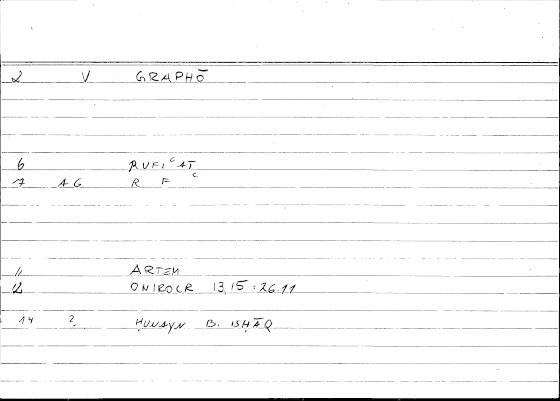 2 V GRAPHŌ
6 RUFIᶜAT̄
7 AG R F ᶜ
11 ARTEM
12 ONIROCR 13,15:26.11
14 ? ḤUNAYN B. ISḤĀQ